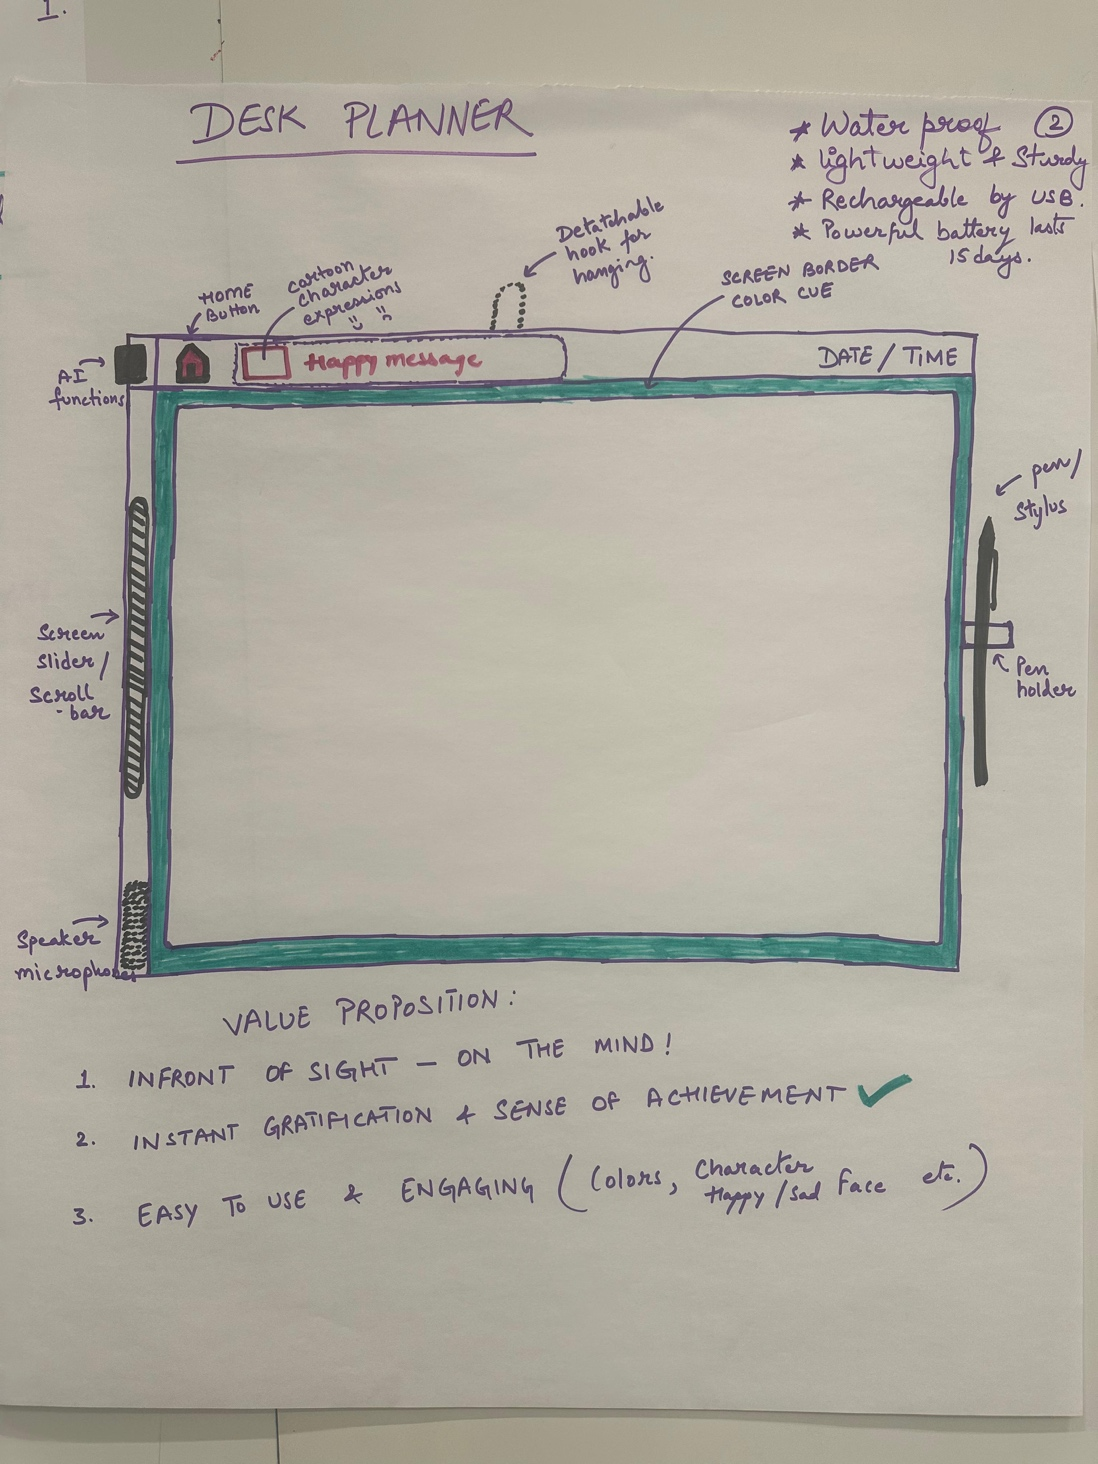 1.
DESK PLANNER
②
* Water proof
* lightweight & Sturdy
* Rechargeable by USB.
* Powerful battery lasts
15 days.
Detatchable
hook for
hanging.
SCREEN BORDER
COLOR CUE
cartoon
character
expressions
HOME
BUTTON
AI
functions
Happy message
DATE / TIME
pen/
Stylus
Screen
slider/
Scroll
-bar
Pen
holder
Speaker
microphones
VALUE PROPOSITION:
1. INFRONT OF SIGHT – ON THE MIND!
2. INSTANT GRATIFICATION & SENSE OF ACHIEVEMENT ✓
3. EASY TO USE & ENGAGING (Colors, Character
Happy/Sad Face etc.)